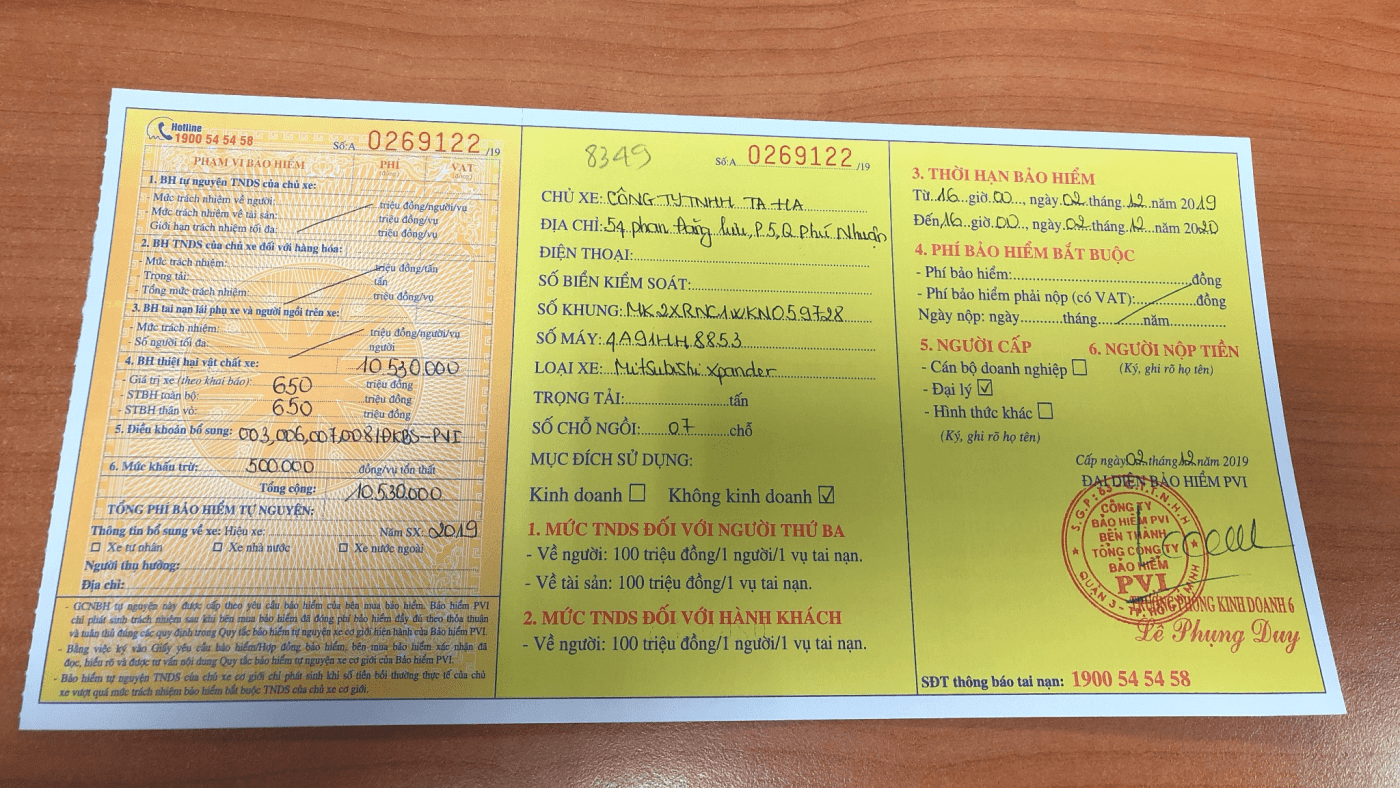 Hotline
1900 54 54 58
Số:A 0269122 /19
PHẠM VI BẢO HIỂM PHÍ (đồng) VAT (đồng)
1. BH tự nguyện TNDS của chủ xe:
- Mức trách nhiệm về người: triệu đồng/người/vụ
- Mức trách nhiệm về tài sản: triệu đồng/vụ
Giới hạn trách nhiệm tối đa: triệu đồng/vụ
2. BH TNDS của chủ xe đối với hàng hóa:
- Mức trách nhiệm: triệu đồng/tấn
- Trọng tải: tấn
- Tổng mức trách nhiệm: triệu đồng/vụ
3. BH tai nạn lái phụ xe và người ngồi trên xe:
- Mức trách nhiệm: triệu đồng/người/vụ
- Số người tối đa: người
4. BH thiệt hại vật chất xe: 10.530.000
- Giá trị xe (theo khai báo): 650 triệu đồng
- STBH toàn bộ: triệu đồng
- STBH thân vỏ: 650 triệu đồng
5. Điều khoản bổ sung: 003,006,007,008/ĐKBS-PVI
6. Mức khấu trừ: 500.000 đồng/vụ tổn thất
Tổng cộng: 10.530.000
TỔNG PHÍ BẢO HIỂM TỰ NGUYỆN:
Thông tin bổ sung về xe: Hiệu xe: Năm SX: 2019
Xe tư nhân Xe nhà nước Xe nước ngoài
Người thụ hưởng:
Địa chỉ:
- GCNBH tự nguyện này được cấp theo yêu cầu bảo hiểm của bên mua bảo hiểm. Bảo hiểm PVI
chỉ phát sinh trách nhiệm sau khi bên mua bảo hiểm đã đóng phí bảo hiểm đầy đủ theo thỏa thuận
và tuân thủ đúng các quy định trong Quy tắc bảo hiểm tự nguyện xe cơ giới hiện hành của Bảo hiểm PVI.
- Bằng việc ký vào Giấy yêu cầu bảo hiểm/Hợp đồng bảo hiểm, bên mua bảo hiểm xác nhận đã
đọc, hiểu rõ và được tư vấn nội dung Quy tắc bảo hiểm tự nguyện xe cơ giới của Bảo hiểm PVI.
- Bảo hiểm tự nguyện TNDS của chủ xe cơ giới chỉ phát sinh khi số tiền bồi thường thực tế của chủ
xe vượt quá mức trách nhiệm bảo hiểm bắt buộc TNDS của chủ xe cơ giới.
8349
Số:A 0269122 /19
CHỦ XE: CÔNG TY TNHH TA HA
ĐỊA CHỈ: 54 phan Đăng Lưu, P5, Q Phú Nhuận
ĐIỆN THOẠI:
SỐ BIỂN KIỂM SOÁT:
SỐ KHUNG: MK2XRNC1WKN059728
SỐ MÁY: 4A91HH8853
LOẠI XE: Mitsubishi Xpander
TRỌNG TẢI: tấn
SỐ CHỖ NGỒI: 07 chỗ
MỤC ĐÍCH SỬ DỤNG:
Kinh doanh ☐ Không kinh doanh ☑
1. MỨC TNDS ĐỐI VỚI NGƯỜI THỨ BA
- Về người: 100 triệu đồng/1 người/1 vụ tai nạn.
- Về tài sản: 100 triệu đồng/1 vụ tai nạn.
2. MỨC TNDS ĐỐI VỚI HÀNH KHÁCH
- Về người: 100 triệu đồng/1 người/1 vụ tai nạn.
3. THỜI HẠN BẢO HIỂM
Từ 16 giờ 00, ngày 02 tháng 12 năm 2019
Đến 16 giờ 00, ngày 02 tháng 12 năm 2020
4. PHÍ BẢO HIỂM BẮT BUỘC
- Phí bảo hiểm: đồng
- Phí bảo hiểm phải nộp (có VAT): đồng
Ngày nộp: ngày tháng năm
5. NGƯỜI CẤP 6. NGƯỜI NỘP TIỀN
- Cán bộ doanh nghiệp ☐ (Ký, ghi rõ họ tên)
- Đại lý ☑
- Hình thức khác ☐
(Ký, ghi rõ họ tên)
Cấp ngày 02 tháng 12 năm 2019
ĐẠI DIỆN BẢO HIỂM PVI
CÔNG TY
BẢO HIỂM PVI
BẾN THÀNH
TỔNG CÔNG TY
BẢO HIỂM
PVI
TRƯỞNG PHÒNG KINH DOANH 6
Lê Phụng Duy
SĐT thông báo tai nạn: 1900 54 54 58